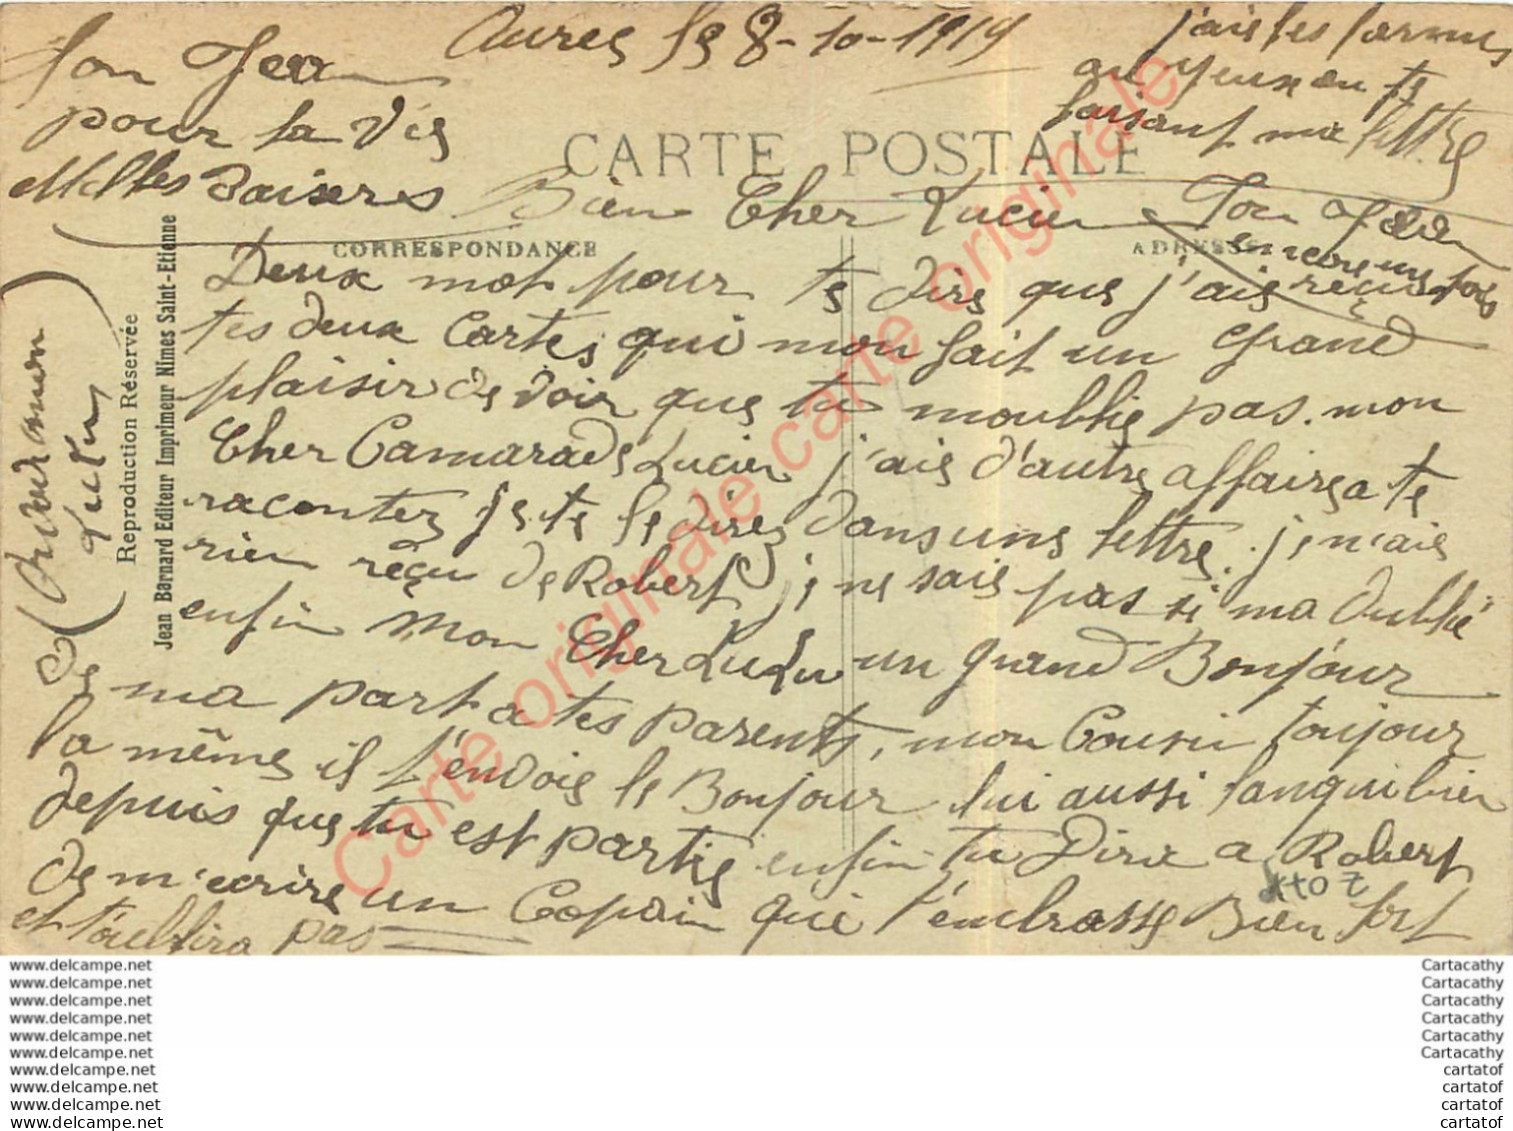 le 8-10-1919
j'ais les larmes
au yeux en te
faisant ma lettre
Ton Jean
pour la Vie
Milles Baisers
CARTE POSTALE
Bien Cher Lucien
Ton Jean
encore une fois
CORRESPONDANCE
ADRESSE
Deux mot pour te dire que j'ais reçus
tes deux Cartes qui mon fait un grand
plaisir de voir que tu moublie pas. mon
Cher Camarade Lucien j'ais d'autre affaires a te
racontez je te le direz dans une lettre. je n'ais
rien reçu de Robert je ne sais pas si ma oublié
enfin Mon Cher LuLu un grand Bonjour
de ma part a tes parents, mon Cousin toujour
la même il t'envois le Bonjour lui aussi langui bien
depuis que tu est partie enfin tu Dira a Robert
de m'ecrire un Copain que t'embrasse Bien fort
et t'oublira pas
Kto z
mon
Lulu
Reproduction Réservée
Jean Bernard Editeur Imprimeur Nimes Saint-Etienne
Carte originale carte originale
Carte originale
www.delcampe.net
www.delcampe.net
www.delcampe.net
www.delcampe.net
www.delcampe.net
www.delcampe.net
www.delcampe.net
www.delcampe.net
www.delcampe.net
www.delcampe.net
Cartacathy
Cartacathy
Cartacathy
Cartacathy
Cartacathy
Cartacathy
cartatof
cartatof
cartatof
cartatof